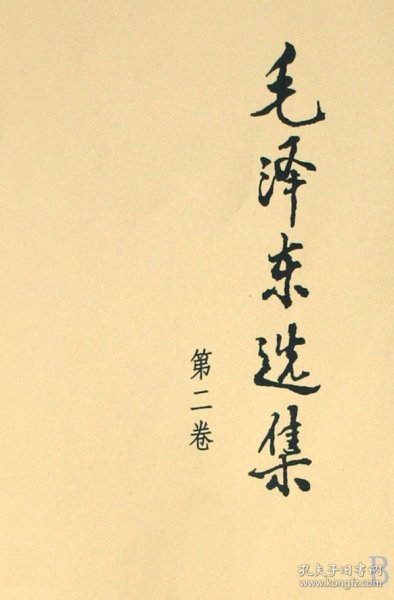 毛泽东选集
第二卷
孔夫子旧书网
www.kongfz.com
B